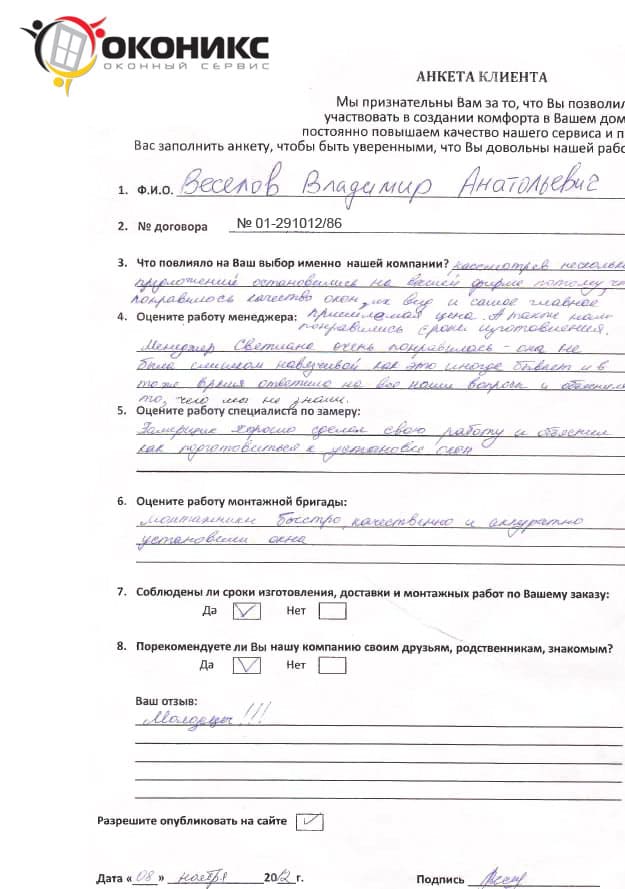 ОКОНИКС
ОКОННЫЙ СЕРВИС
АНКЕТА КЛИЕНТА
Мы признательны Вам за то, что Вы позволил
участвовать в создании комфорта в Вашем дом
постоянно повышаем качество нашего сервиса и п
Вас заполнить анкету, чтобы быть уверенными, что Вы довольны нашей рабо
1. Ф.И.О. Веселов Владимир Анатольевич
2. № договора № 01-291012/86
3. Что повлияло на Ваш выбор именно нашей компании? рассмотрев нескольк
предложений остановились на вашей фирме потому чт
понравилось качество окон, их вид и самое главное
4. Оцените работу менеджера: приемлемая цена. А также нам
понравились сроки изготовления.
Менеджер Светлана очень понравилась - она не
была слишком навязчивой как это иногда бывает и в
то же время ответила на все наши вопросы и объяснила
то, чего мы не знали.
5. Оцените работу специалиста по замеру:
Замерщик хорошо сделал свою работу и объяснил
как подготовиться к установке окон
6. Оцените работу монтажной бригады:
монтажники быстро, качественно и аккуратно
установили окна
7. Соблюдены ли сроки изготовления, доставки и монтажных работ по Вашему заказу:
Да Нет
8. Порекомендуете ли Вы нашу компанию своим друзьям, родственникам, знакомым?
Да Нет
Ваш отзыв:
Молодцы!!!
Разрешите опубликовать на сайте
Дата «08» ноября 2012 г. Подпись